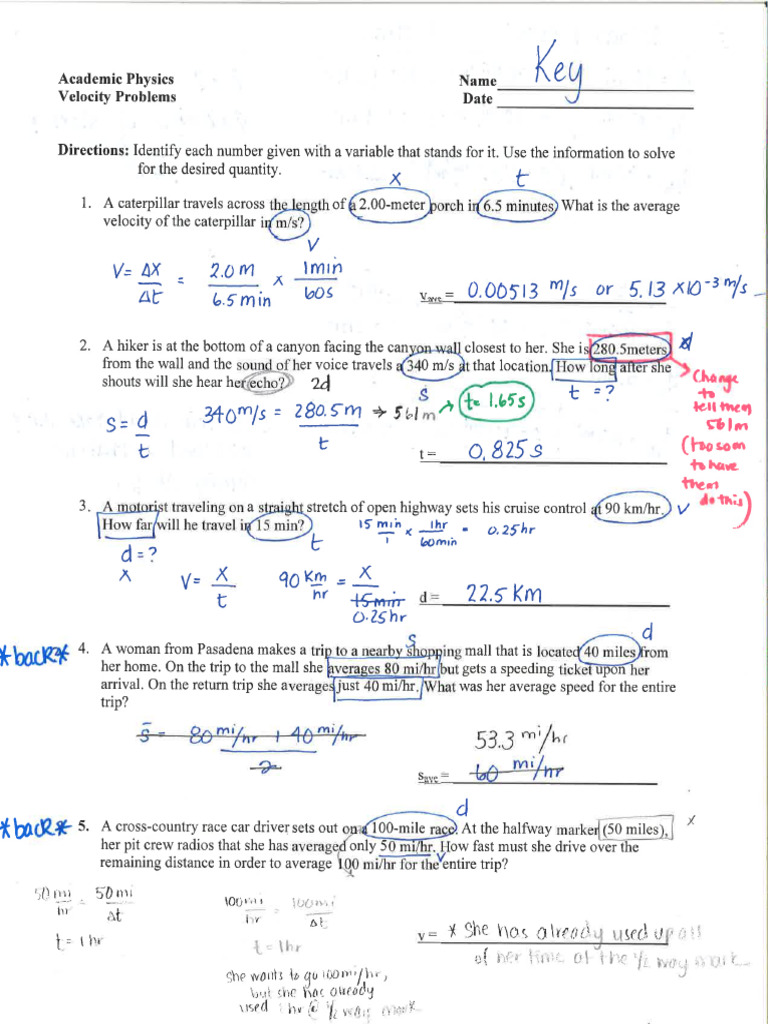 Key
Academic Physics
Name
Velocity Problems
Date
Directions: Identify each number given with a variable that stands for it. Use the information to solve
for the desired quantity.
x t
1. A caterpillar travels across the length of a 2.00-meter porch in 6.5 minutes. What is the average
velocity of the caterpillar in m/s?
v
V = Δx / Δt = 2.0 m / 6.5 min x 1 min / 60s
vave = 0.00513 m/s or 5.13 x 10-3 m/s
2. A hiker is at the bottom of a canyon facing the canyon wall closest to her. She is 280.5meters d
from the wall and the sound of her voice travels a 340 m/s at that location. How long after she
shouts will she hear her echo? 2d s t = ?
Change
to
tell them
561m
(too soon
to have
them
do this)
S = d / t 340 m/s = 280.5 m / t → 561m → t = 1.65s
t = 0.825 s
3. A motorist traveling on a straight stretch of open highway sets his cruise control at 90 km/hr. v
How far will he travel in 15 min? 15 min / 1 x 1hr / 60min = 0.25hr
t
d = ?
x
V = x / t 90 km / hr = x / 15 min 0.25hr
d = 22.5 km
s d
*back* 4. A woman from Pasadena makes a trip to a nearby shopping mall that is located 40 miles from
her home. On the trip to the mall she averages 80 mi/hr but gets a speeding ticket upon her
arrival. On the return trip she averages just 40 mi/hr. What was her average speed for the entire
trip?
s̄ = 80 mi/hr + 40 mi/hr / 2
53.3 mi/hr
save = 60 mi/hr
d
*back* 5. A cross-country race car driver sets out on a 100-mile race. At the halfway marker (50 miles), x
her pit crew radios that she has averaged only 50 mi/hr. How fast must she drive over the
remaining distance in order to average 100 mi/hr for the entire trip?
v
50 mi / hr = 50 mi / Δt
t = 1 hr
100 mi / hr = 100 mi / Δt
t = 1hr
v = * She has already used up all
of her time at the 1/2 way mark
she wants to go 100mi/hr,
but she has already
used 1 hr @ 1/2 way mark